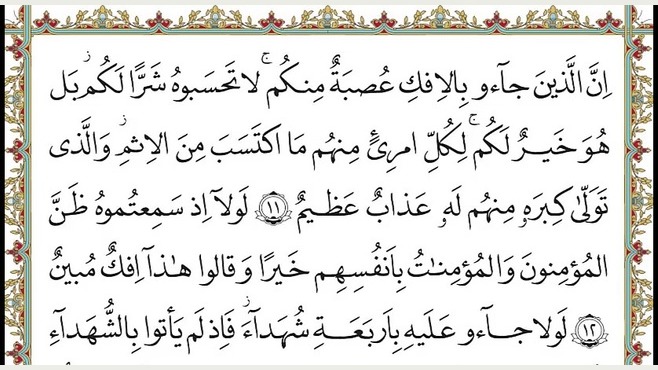 اِنَّ الَّذينَ جآءو بِالاِفكِ عُصبَةٌ مِنكُم ۚ لا تَحسَبوهُ شَرًّا لَكُم ۖ بَل
هُوَ خَيرٌ لَكُم ۚ لِكُلِّ امرِئٍ مِنهُم مَا اكتَسَبَ مِنَ الاِثمِ ۚ وَالَّذى
تَوَلّىٰ كِبرَهٗ مِنهُم لَهٗ عَذابٌ عَظيمٌ ﴿١١﴾ لَولآ اِذ سَمِعتُموهُ ظَنَّ
المُؤمِنونَ وَالمُؤمِنٰتُ بِاَنفُسِهِم خَيرًا وَقالوا هٰذآ اِفكٌ مُبينٌ
﴿١٢﴾ لَولا جآءو عَلَيهِ بِاَربَعَةِ شُهَدآءَ ۚ فَاِذ لَم يَأتوا بِالشُّهَدآءِ